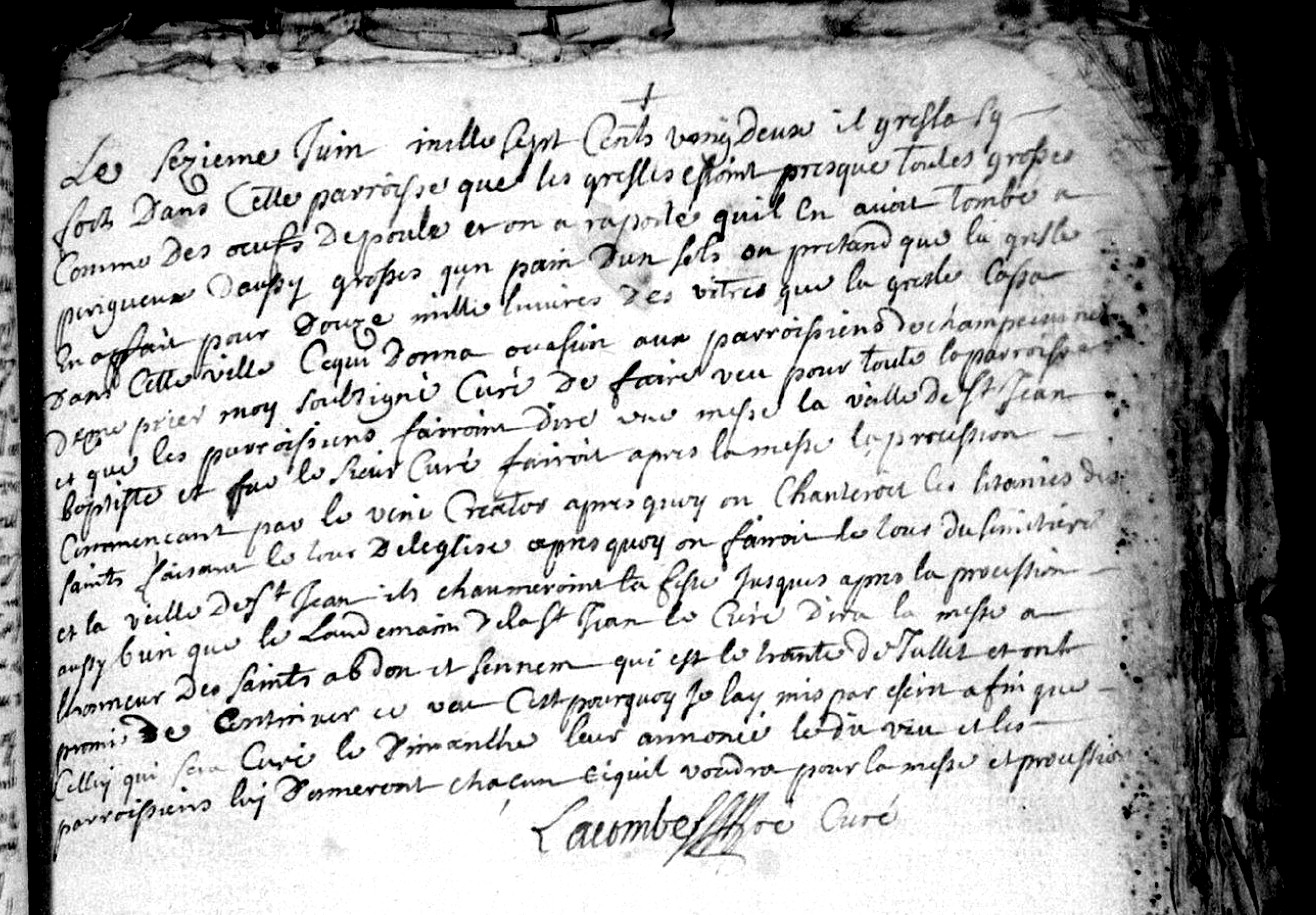 Le sezieme Juin mille sept Cents vengdeux il gresla sy
fort Dans Cette parroisse que les gresles estoint presque toutes grosses
Comme Des oeufs De poule et on a raporté quil En avoit tombé a
perigueux Daussy grosses qun pain dun sols on pretand que la gresle
En affait pour Douze mille livvres des vitres que la gresle Cassa
Dans Cette ville Cequi Donna ocasion aux parroissiens de champcevinel
Deme prier moy soubzigné Curé De faire veu pour toute la parroisse
et que les parroissiens fairoint dire une messe la vaille de St Jean
baptiste et que le sieur Curé fairoit apres la messe la procession
Commencant par le veni Creator apres quoy on Chanteroit les litanies des
saints faisant le tour De leglise apres quoy on fairoit le tour du simitiere
et la veille De St Jean ils chaumeroint la feste Jusques apres la procession
aussy bien que le Landemain de la St Jean le Curé dira la messe a
lhonneur Des saints abdon et sennem qui est le trante de Jullet et ont
promi De Continuer ce veu Cest pourquoy Je lay mis par escrit afin que
Celluy qui sera Curé le Dimanche leur annonce le dit veu et les
parroissiens luy Donneront chacun Ce quil voudra pour la messe et procession
Lacombe Curé